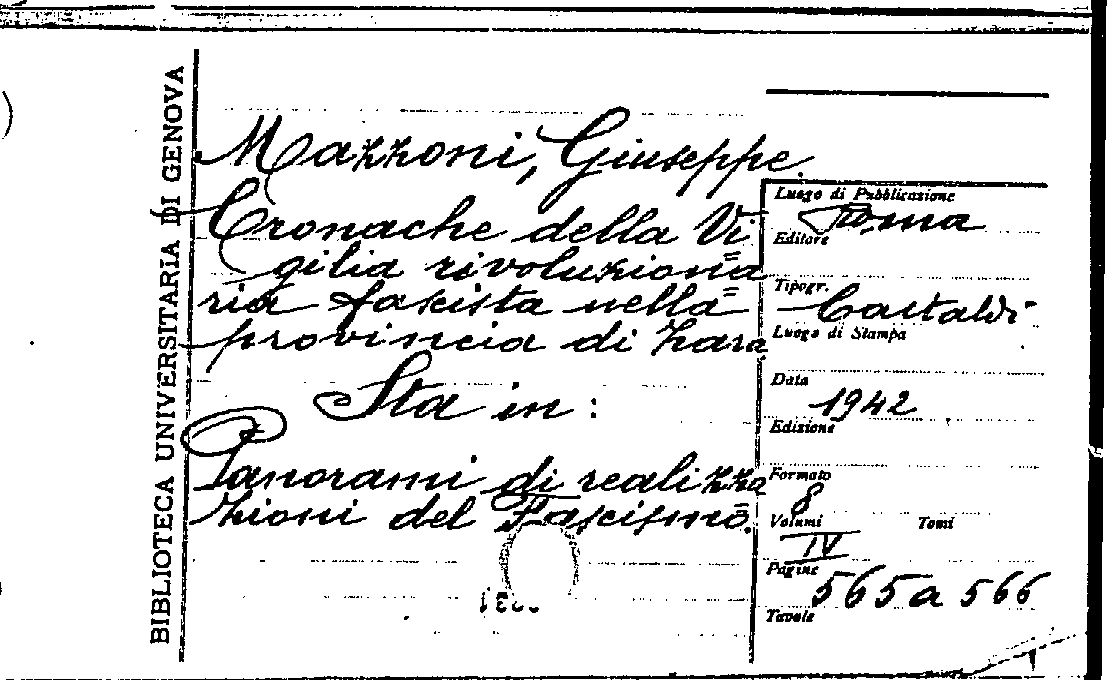 BIBLIOTECA UNIVERSITARIA DI GENOVA
Mazzoni, Giuseppe.
Cronache della Vi=
gilia rivoluziona=
ria fascista nella
provincia di Zara
Sta in:
Panorami di realizza=
zioni del Fascismo.
Luogo di Pubblicazione
Roma
Editore
Tipogr.
Castaldi
Luogo di Stampa
Data
1942
Edizione
Formato
8
Volumi Tomi
IV
Pagine
565 a 566
Tavole